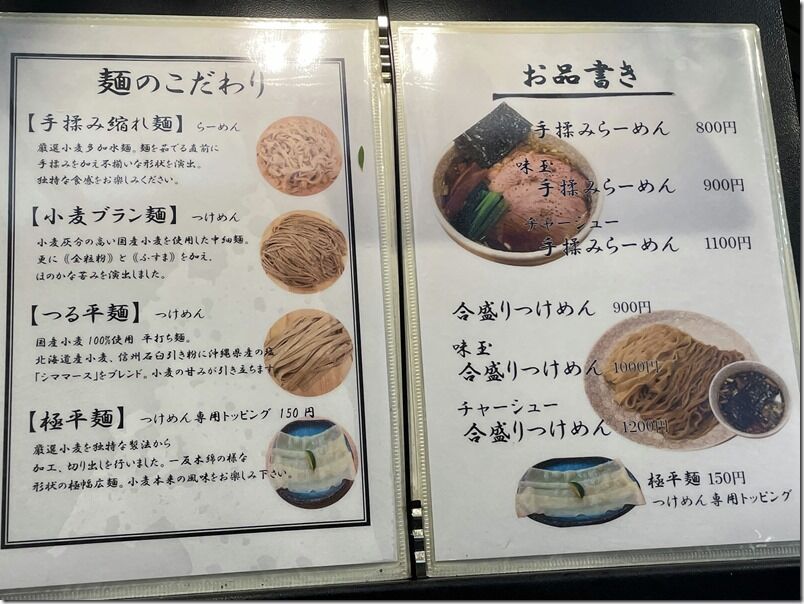 麺のこだわり
【手揉み縮れ麺】 らーめん
厳選小麦多加水麺。麺を茹でる直前に
手揉みを加え不揃いな形状を演出。
独特な食感をお楽しみください。
【小麦ブラン麺】 つけめん
小麦灰分の高い国産小麦を使用した中細麺。
更に《全粒粉》と《ふすま》を加え、
ほのかな苦みを演出しました。
【つる平麺】 つけめん
国産小麦100%使用 平打ち麺。
北海道産小麦、信州石臼引き粉に沖縄県産の塩
「シママース」をブレンド。小麦の甘みが引き立ちます
【極平麺】 つけめん専用トッピング 150円
厳選小麦を独特な製法から
加工、切り出しを行いました。一反木綿の様な
形状の極幅広麺。小麦本来の風味をお楽しみ下さい。
お品書き
手揉みらーめん 800円
味玉
手揉みらーめん 900円
チャーシュー
手揉みらーめん 1100円
合盛りつけめん 900円
味玉
合盛りつけめん 1000円
チャーシュー
合盛りつけめん 1200円
極平麺 150円
つけめん専用トッピング